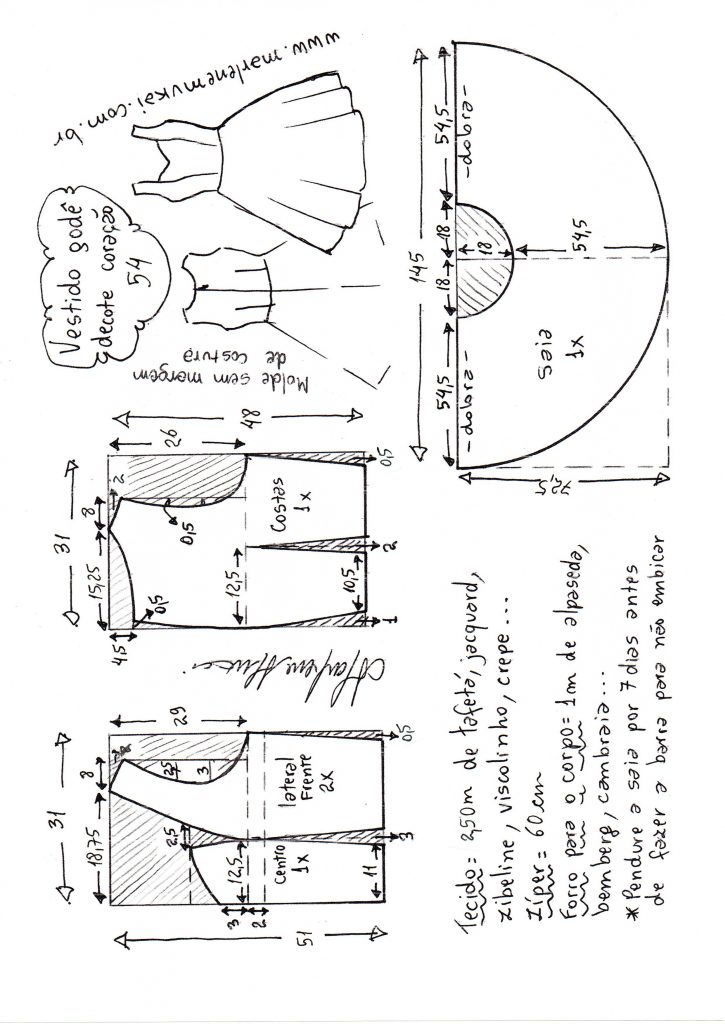 www.marlenemukai.com.br
Vestido godê
decote coração
54
Molde sem margem
de costura
145
54,5
18
18
54,5
-dobra-
-dobra-
18
54,5
72,5
Saia
1x
31
15,25
8
2
26
48
4,5
0,5
0,5
Costas
1x
12,5
10,5
1
2
0,5
31
18,75
8
29
51
2,5
2,5
3
lateral
Frente
2x
Centro
1x
12,5
11
3
2
3
0,5
Tecido = 2,50m de tafetá, jacquard,
zibeline, viscolinho, crepe...
Zíper = 60cm
Forro para o corpo = 1m de alpaseda,
bemberg, cambraia...
*Pendure a saia por 7 dias antes
de fazer a barra para não embicar